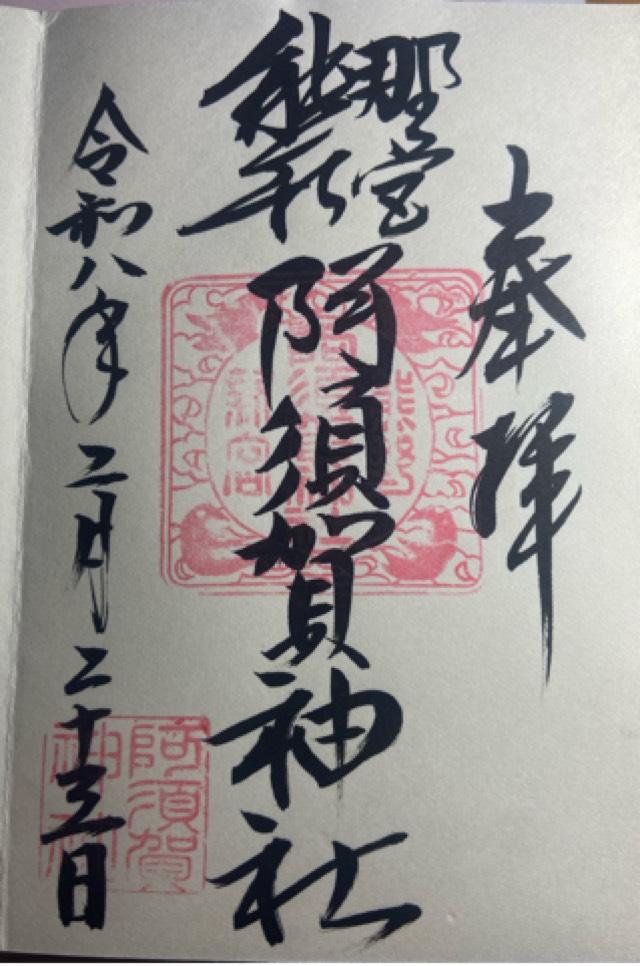 奉拝
熊野
新宮
阿須賀神社
令和八年二月二十三日
阿須賀
神社